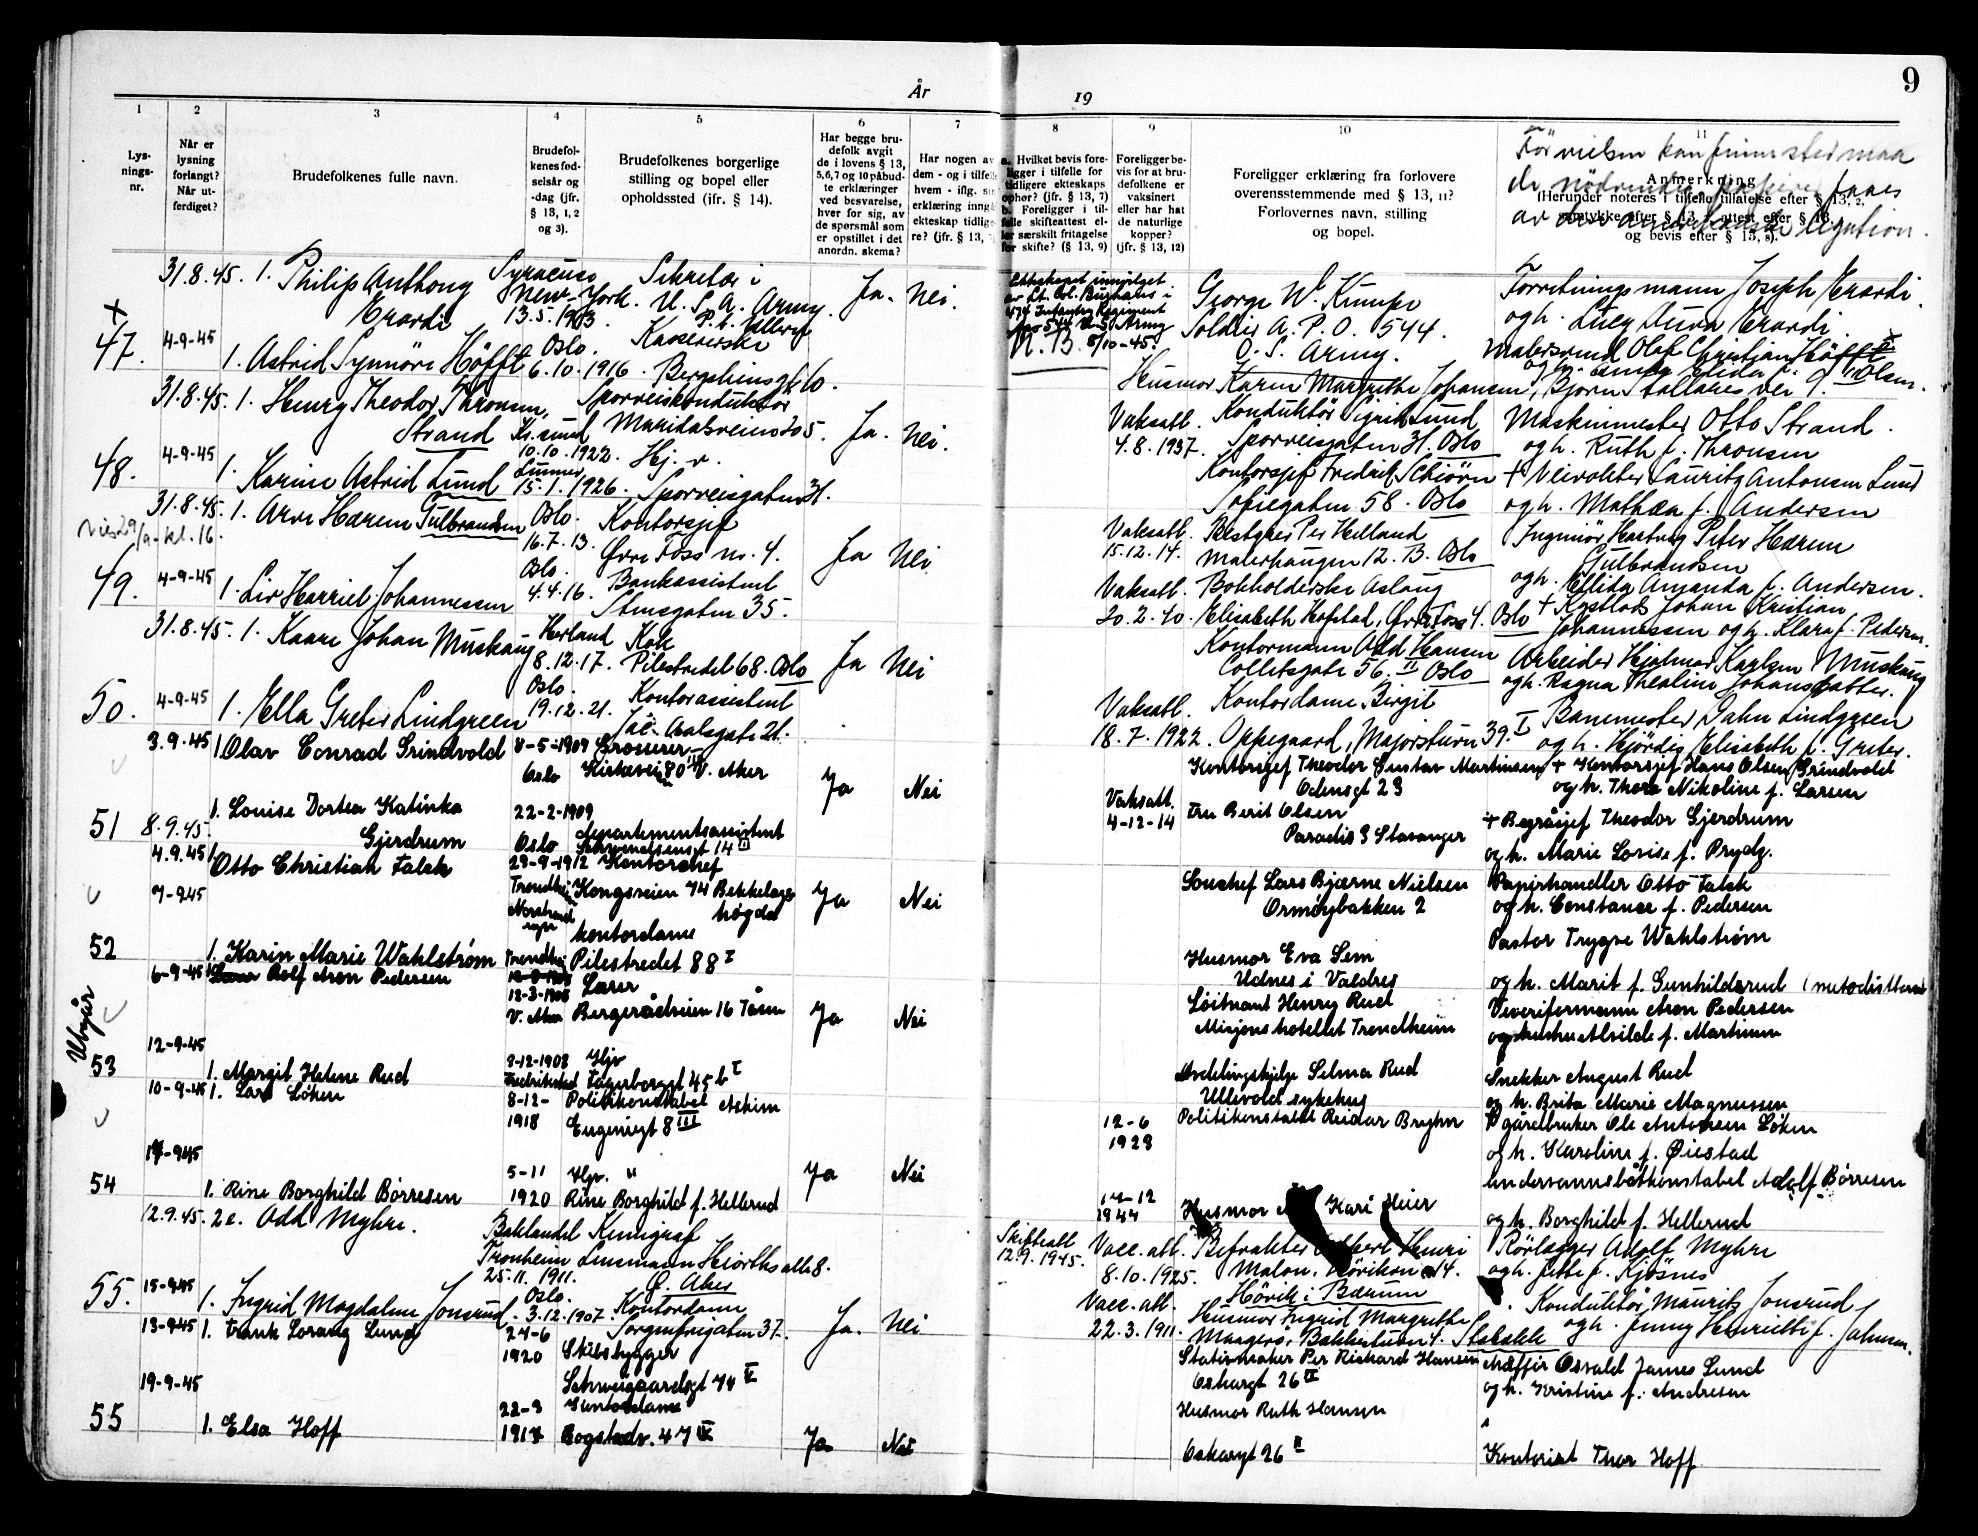 År 19
9
1 2 3 4 5 6 7 8 9 10 11
Lysnings-nr.
Når er lysning forlangt? Når utferdiget?
Brudefolkenes fulle navn.
Brudefolkenes fødselsår og -dag (jfr. § 13, 1, 2 og 3).
Brudefolkenes borgerlige stilling og bopel eller opholdssted (ifr. § 14).
Har begge brudefolk avgit de i lovens § 13, 5,6,7 og 10 påbudte erklæringer ved besvarelse, hver for sig, av de spørsmål som er opstillet i det anordn. skema?
Har nogen av dem - og i tilfelle hvem - iflg.
erklæring inngå
ekteskap tidlige-
re? (jfr. § 13,
Hvilket bevis foreligger i tilfelle for tidligere ekteskaps ophør? (jfr. § 13, 7)
b. Foreligger i tilfelle skifteattest eller særskilt fritagelse for skifte? (§ 13, 9)
Foreligger bevis for at brudefolkene er vaksinert eller har hat de naturlige kopper? (jfr. § 13, 12)
Foreligger erklæring fra forlovere overensstemmende med § 13, 11? Forlovernes navn, stilling og bopel.
Anmerkning
(Herunder noteres i tilfelle tillatelse efter § 13, 2, samtykke efter § 13, attest efter § 13, og bevis efter § 13, 8).
Før vielsen kan finne sted maa
de nødvendige papirer faaes
av den amerikanske legation.
31.8.45. 1. Philip Anthony
Erardi
Syracuse
New-York.
13.5.1903.
Sekretær i
U. S. A. Army.
Ja. Nei.
Ekteskapet innvilget
av Lt. Col.
474 Infantry Regiment
Apo 544 U.S. Army
N.B. 8/10-45.
George W. Kumpe
Soldier A. P. O. 544.
U. S. Army.
Forretningsmann Joseph Erardi
og h.
+
47. 4-9-45 1. Astrid Synnøve Høfft
Oslo.
6.10.1916.
Kassererske
Bergsliensgt. 10.
Husmor Karen Margrethe Johansen, Bjørn Stallares vei 9.
Malersvend Olaf Christian Høfft
og h. Elida f. Olsen.
31.8.45. 1. Henry Theodor Thronsen,
Strand
Kr.sund
10.10.1922.
Sporveiskonduktør
Maridalsveien 205.
Ja. Nei.
Vaksatt.
4.8.1937.
Konduktør Sigurd Lund
Sporveisgaten 31. Oslo
Maskinmester Otto Strand.
og h. Ruth f. Thronsen
48. 4-9-45 1. Karine Astrid Lund
Lunner
15.1.1926.
Hj. v.
Sporveisgaten 31.
Kontorsjef Fredrik Schiørn
Sofiegaten 58. Oslo
+ Veivokter Laurits Antonsen Lund
og h. Mathea f. Andersen
31.8.45. 1. Arve Hærem Gulbrandsen
Oslo.
16.7.13.
Kontorsjef
Øvre Foss no. 4.
Ja Nei.
Vies 29/9-kl.16.
Vaksatt.
15.12.14.
Bestyrer Per Helland
Malerhaugen 12. B. Oslo
Ingeniør Hartvig Peter Hærem
Gulbrandsen
og h. Ellida Amanda f. Andersen.
49. 4-9-45 1. Liv Harriet Johannessen
Oslo.
4.4.16.
Bankassistent
Stensgaten 35.
Vaksatt.
20.2.40.
Bokholderske Aslaug
Elisabeth Hofstad, Øvre Foss 4. Oslo
+ Kystlods Johan Kristian
Johannessen og h. Klara f. Pedersen.
31.8.45. 1. Kaare Johan Muskaug
Herland
8.12.17.
Kok
Pilestredet 68. Oslo
Ja Nei
Kontormann Odd Hansen
Colletsgate 56. II Oslo
Arbeider Hjalmar Karlsen Muskaug
og h. Ragna Thealine Johansdatter.
50. 4-9-45 1. Ella Greter Lindgreen
Oslo.
19.12.21.
Kontorassistent
Jac. Aalsgate 21.
Vaksatt.
18.7.1922.
Kontordame Birgit
Oppegaard, Majorstuvn 39. I
Banemester Dahn Lindgreen
og h. Hjørdis Elisabeth f. Greter.
3.9.45 1. Olav Conrad Grindvold
4-5-1909
Oslo
Grosserer
Kirkevei 80 III V. Aker
Ja Nei
Kontorsjef Theodor Gustav Martinsen
Odinsgt 23
+ Kontorsjef Hans Olsen Grindvold
og h. Thora Nikoline f. Larsen
51 8.9.45. 1. Louise Dortea Katinka
Gjerdrum
22-2-1909
Oslo
Departementsassistent
Schwendsensgt 14 II
Vaksatt.
4-12-14
Fru Berit Olsen
Paradis 3 Stavanger
+ Byråsjef Theodor Gjerdrum
og h. Marie Lovise f. Prydz.
4.9.45 1. Otto Christian Falck
29-9-1912
Kontorchef
Kongsveien 74 Bekkelags-
høgda
Ja Nei
Souschef Lars Bjarne Nielsen
Ormøybakken 2
Papirhandler Otto Falck
og h. Constance f. Pedersen
7-9-45
52 1. Karin Marie Wahlstrøm
kontordame
Pilestredet 88 I
Husmor Eva Sem
Udnes i Valdres
Pastor Trygve Wahlstrøm
og h. Marit f. Gunhildsrud
6-9-45 Rolf Aron Pedersen
12-3-1906
V. Aker
Lærer
Bergerådveien 16 Tåsen
Ja Nei
Løitnant Henry Rud
Misjonshotellet Trondheim
Veverifermann Aron Pedersen
og hustru Alvilde f. Martinsen
Utgår
12-9-45
53 1. Margit Helene Rud
8-12-1908
Fredrikstad
Hjv
Fagerborggt 45 b I
Avdelingshjelp Selma Rud
Ullevold sykehus
Snekker August Rud
og h. Brita Marie Magnussen
10-9-45 1. Lars Løken
8-12-
1918
Politikonstabel Askim
Eugeniegt 8 III
12-6
1928
Politikonstabel Reidar Bryhn
gårdbruker Ole Antonsen Løken
og h. Karoline f. Øiestad
17-9-45
54 1. Rine Borghild Børresen
5-11
1920
Hjv. "
Rine Borghild f. Hellerud
Ja Nei
14-12
1944
Husmor Kari Heier
Undervannsbåtkonstabel Adolf Børresen
og h. Borghild f. Hellerud
12.9.45. 2e. Odd Myhre.
Baklandet
Tronheim
25.11.1911.
Kemigraf
Lensmann Hiorths alle 8.
Ø. Aker
Skifteatt
12.9.1945.
Vacc. att.
8.10.1925.
Befrakter Albert Henri
Malon, Høvikon 14.
Høvik i Bærum
Rørlegger Adolf Myhre
og h. Jette f. Kjøsnes
55. 15-9-45 1. Ingrid Magdalene Jonsrud.
Oslo.
3.12.1907.
Kontordame
Sorgenfrigaten 37.
Ja. Nei
Vacc. att.
22.3.1911.
Husmor Ingrid Margrethe
Maagerø, Bakkestuen 4. Stabekk
Konduktør Maurits Jonsrud
og h. Jenny Henriette f. Johnsen.
13-9-45 1. Frank Lorang Lund
24-6
1920
Skibsbygger
Schweigaardsgt 74 V
Stativmaker Per Richard Hansen
Oskarsgt 26 II
Maffør Osvald James Lund
og h. Kristine f. Andresen
19-9-45
55 1. Elsa Hoff
22-3
Kontordame
Bogstadv. 47 IV
Ja Nei
Husmor Ruth Hansen
Oskarsgt 26 II
Kontorist Thor Hoff